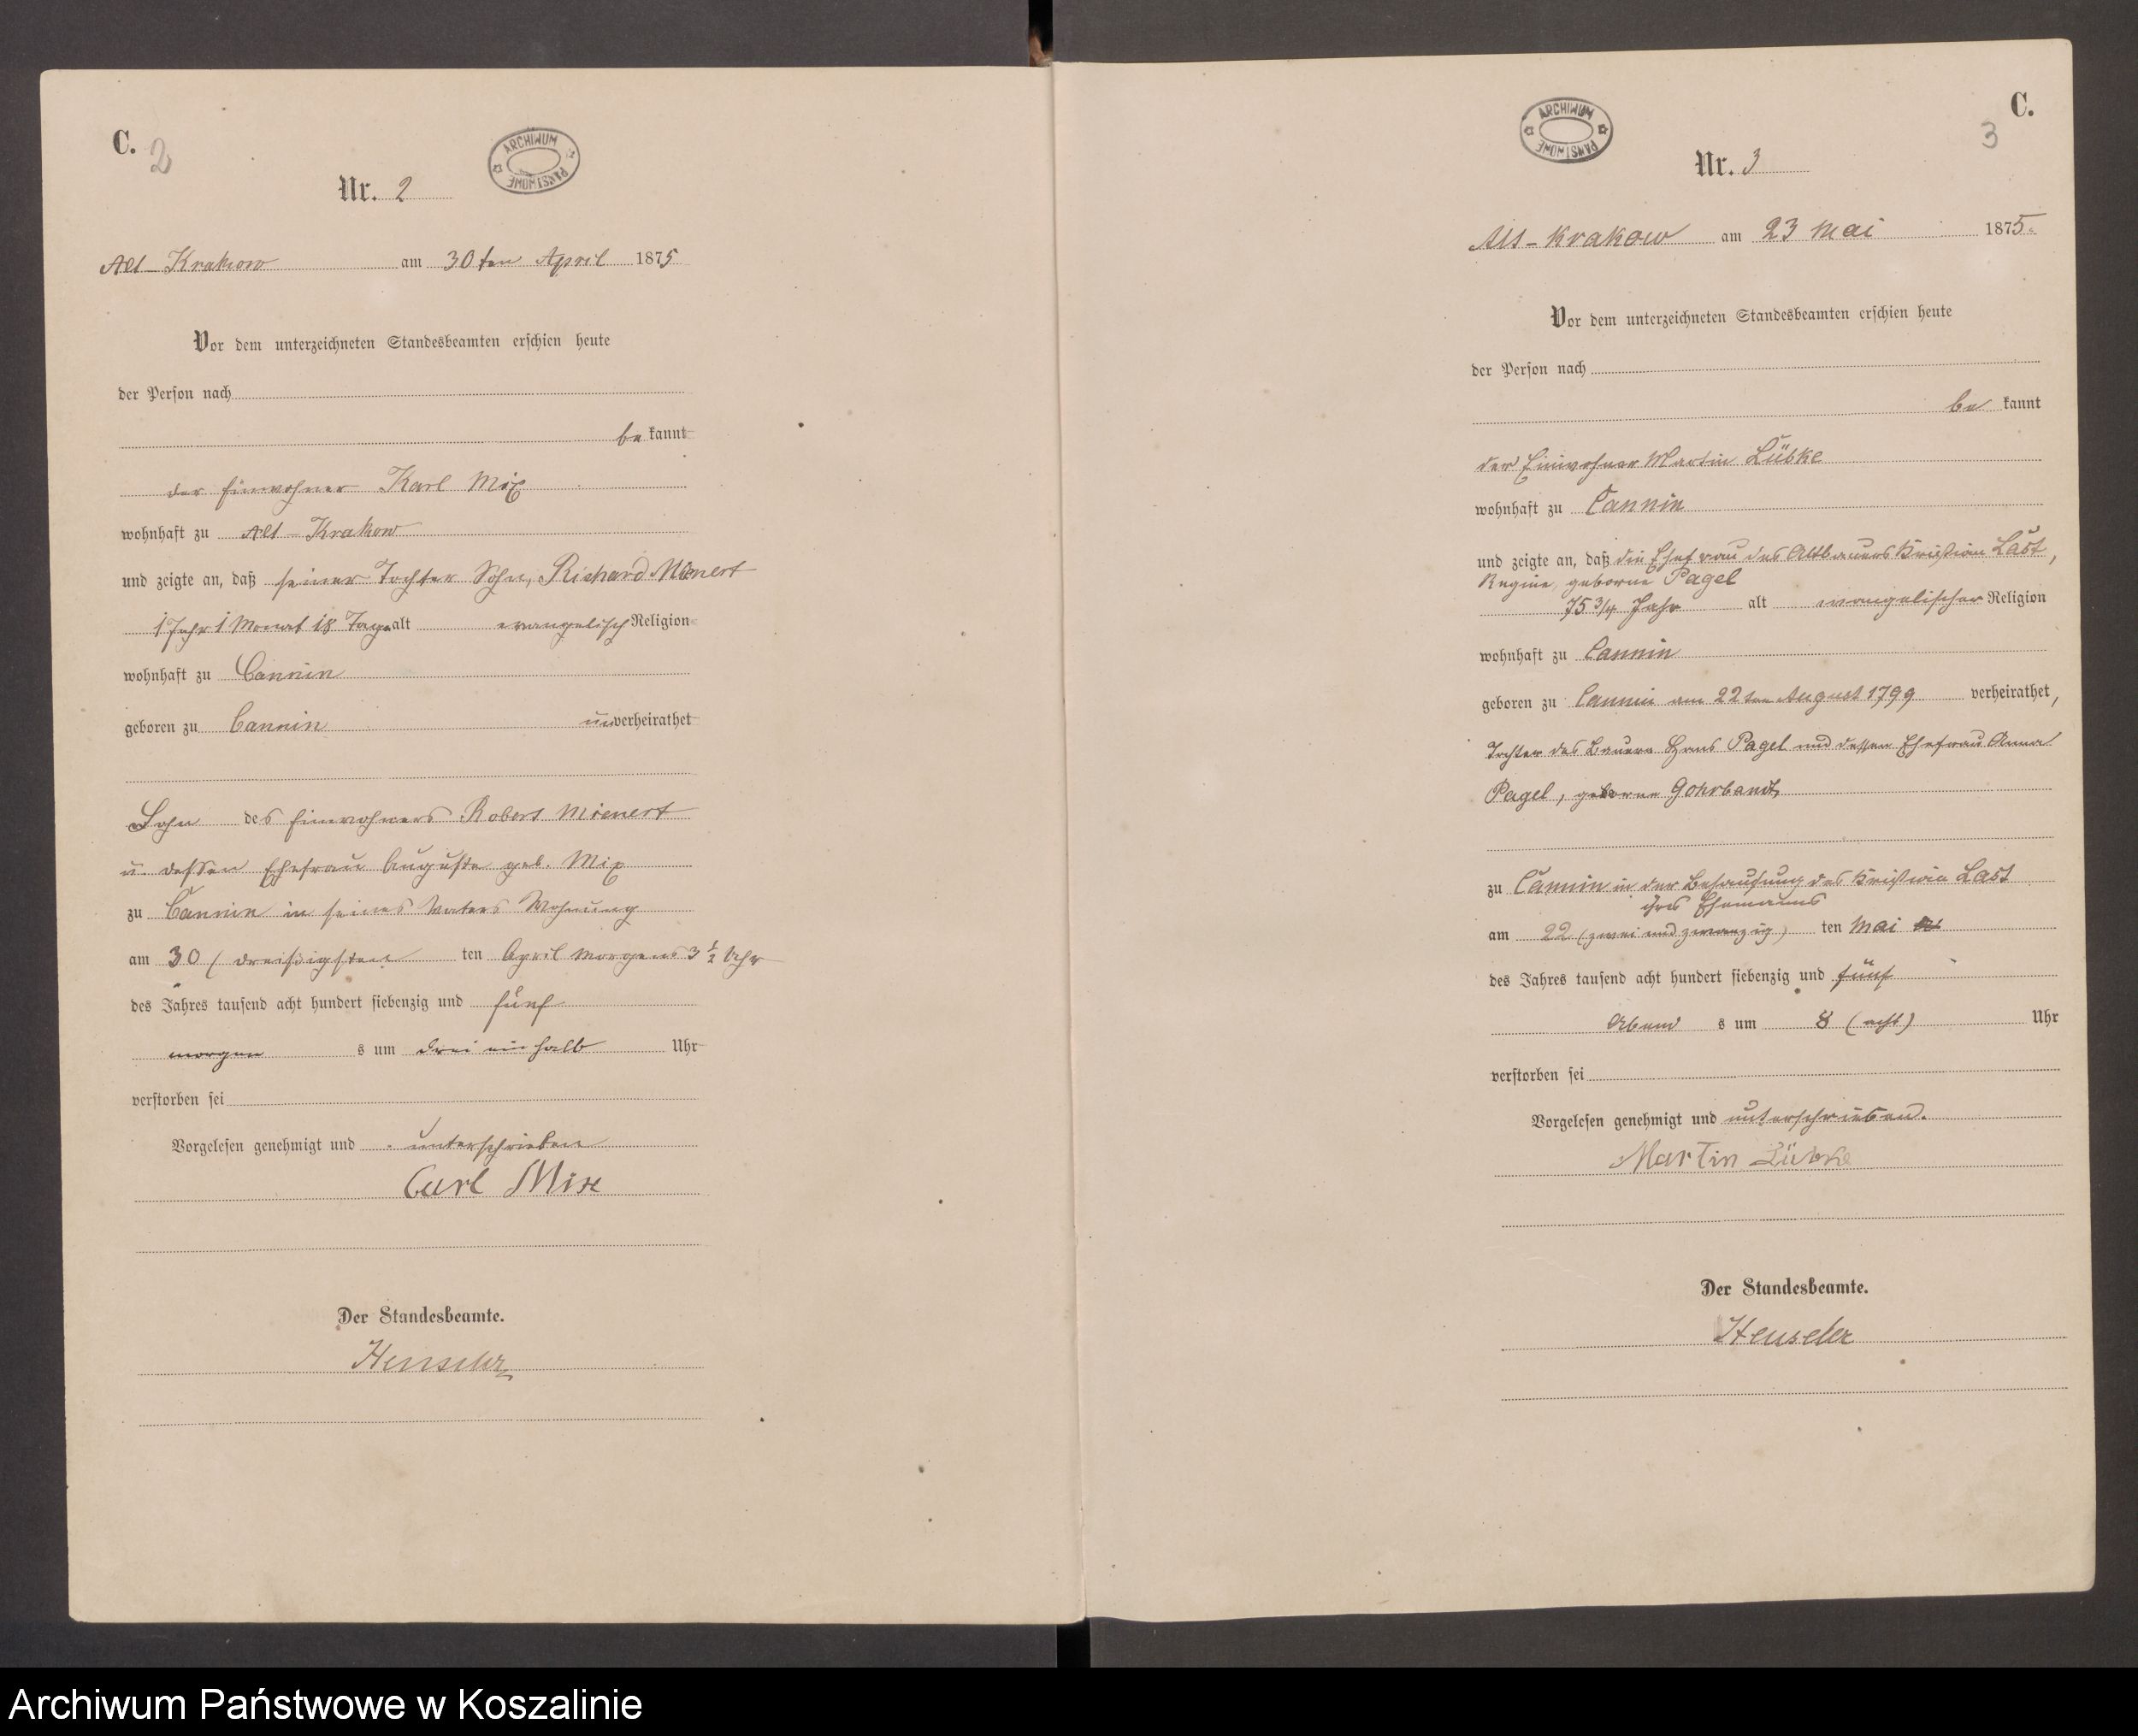 C. 2
ARCHIWUM PAŃSTWOWE
Nr. 2
Alt-Krakow am 30ten April 1875
Vor dem unterzeichneten Standesbeamten erschien heute
der Person nach
be kannt
der Einwohner Karl Mix
wohnhaft zu Alt-Krakow
und zeigte an, daß seiner Tochter Sohn, Richard Mienert
1 Jahr 1 Monat 18 Tage alt evangelisch Religion
wohnhaft zu Cannin
geboren zu Cannin unverheirathet
Sohn des Einwohners Robert Mienert
u. dessen Ehefrau Auguste geb. Mix
zu Cannin in seines Vaters Wohnung
am 30 (dreißigsten ten April Morgens 3 1/2 Uhr
des Jahres tausend acht hundert siebenzig und fünf
morgen s um drei ein halb Uhr
verstorben sei
Vorgelesen genehmigt und unterschrieben
Carl Mix
Der Standesbeamte.
C.
3
ARCHIWUM PAŃSTWOWE
Nr. 3
Alt-Krakow am 23 Mai 1875.
Vor dem unterzeichneten Standesbeamten erschien heute
der Person nach
be kannt
der Einwohner Martin Lübke
wohnhaft zu Cannin
und zeigte an, daß die Ehefrau des Altbauers Kristian Last,
Regine, geborne Pagel
75 3/4 Jahr alt evangelischer Religion
wohnhaft zu Cannin
geboren zu Cannin am 22ten August 1799 verheirathet,
Tochter des Bauern Hans Pagel und dessen Ehefrau Anna
Pagel, geborne Gohrbandt,
zu Cannin in der Behausung des Kristian Last
ihres Ehemanns
am 22 (zwei und zwanzig) ten Mai
des Jahres tausend acht hundert siebenzig und fünf
Abend s um 8 (acht) Uhr
verstorben sei
Vorgelesen genehmigt und unterschrieben.
Martin Lübke
Der Standesbeamte.
Archiwum Państwowe w Koszalinie